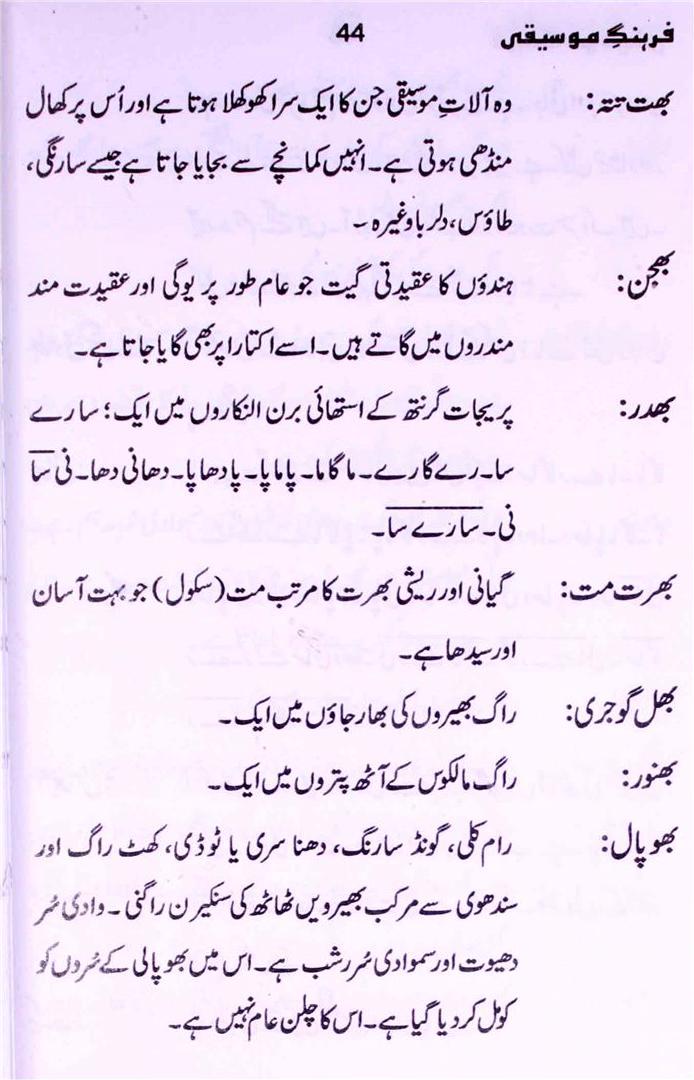 فرہنگِ موسیقی 44
بھت تتہ: وہ آلاتِ موسیقی جن کا ایک سرا کھوکھلا ہوتا ہے اور اُس پر کھال
منڈھی ہوتی ہے۔ انہیں کمانچے سے بجایا جاتا ہے جیسے سارنگی،
طاؤس، دلربا وغیرہ ۔
بھجن: ہندؤں کا عقیدتی گیت جو عام طور پر یوگی اور عقیدت مند
مندروں میں گاتے ہیں۔ اسے اکتارا پر بھی گایا جاتا ہے۔
بھدر: پریجات گرنتھ کے استھائی برن النکاروں میں ایک؛ سا رے
سا۔ رے گا رے۔ ما گا ما۔ پا ما پا۔ پا دھا پا۔ دھا نی دھا۔ نی سا
نی۔ سا رے سا۔
بھرت مت: گیانی اور ریشی بھرت کا مرتب مت (سکول) جو بہت آسان
اور سیدھا ہے۔
بھل گوجری: راگ بھیروں کی بھارجاؤں میں ایک۔
بھنور: راگ مالکوس کے آٹھ پتروں میں ایک۔
بھوپال: رام کلی، گونڈ سارنگ، دھنا سری یا ٹوڈی، کھٹ راگ اور
سندھوی سے مرکب بھیرویں ٹھاٹھ کی سنکیرن راگنی۔ وادی سُر
دھیوت اور سموادی سُر رشب ہے۔ اس میں بھوپالی کے سُروں کو
کومل کر دیا گیا ہے۔ اس کا چلن عام نہیں ہے۔